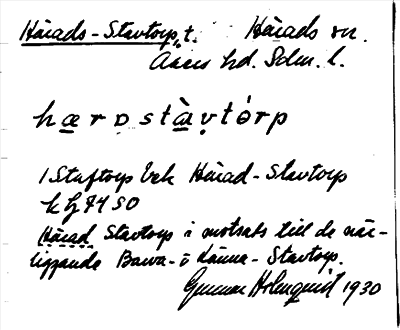 Härads-Stavtorp, t. Härads sn.
Åkers hd. Sdm. l.
hærdstàvtórp
1 Staftorp bek Härad-Stavtorp
Härad Stavtorp i motsats till de när-
liggande Barva- o Länna-Stavtorp.
Gunnar Holmquist 1930